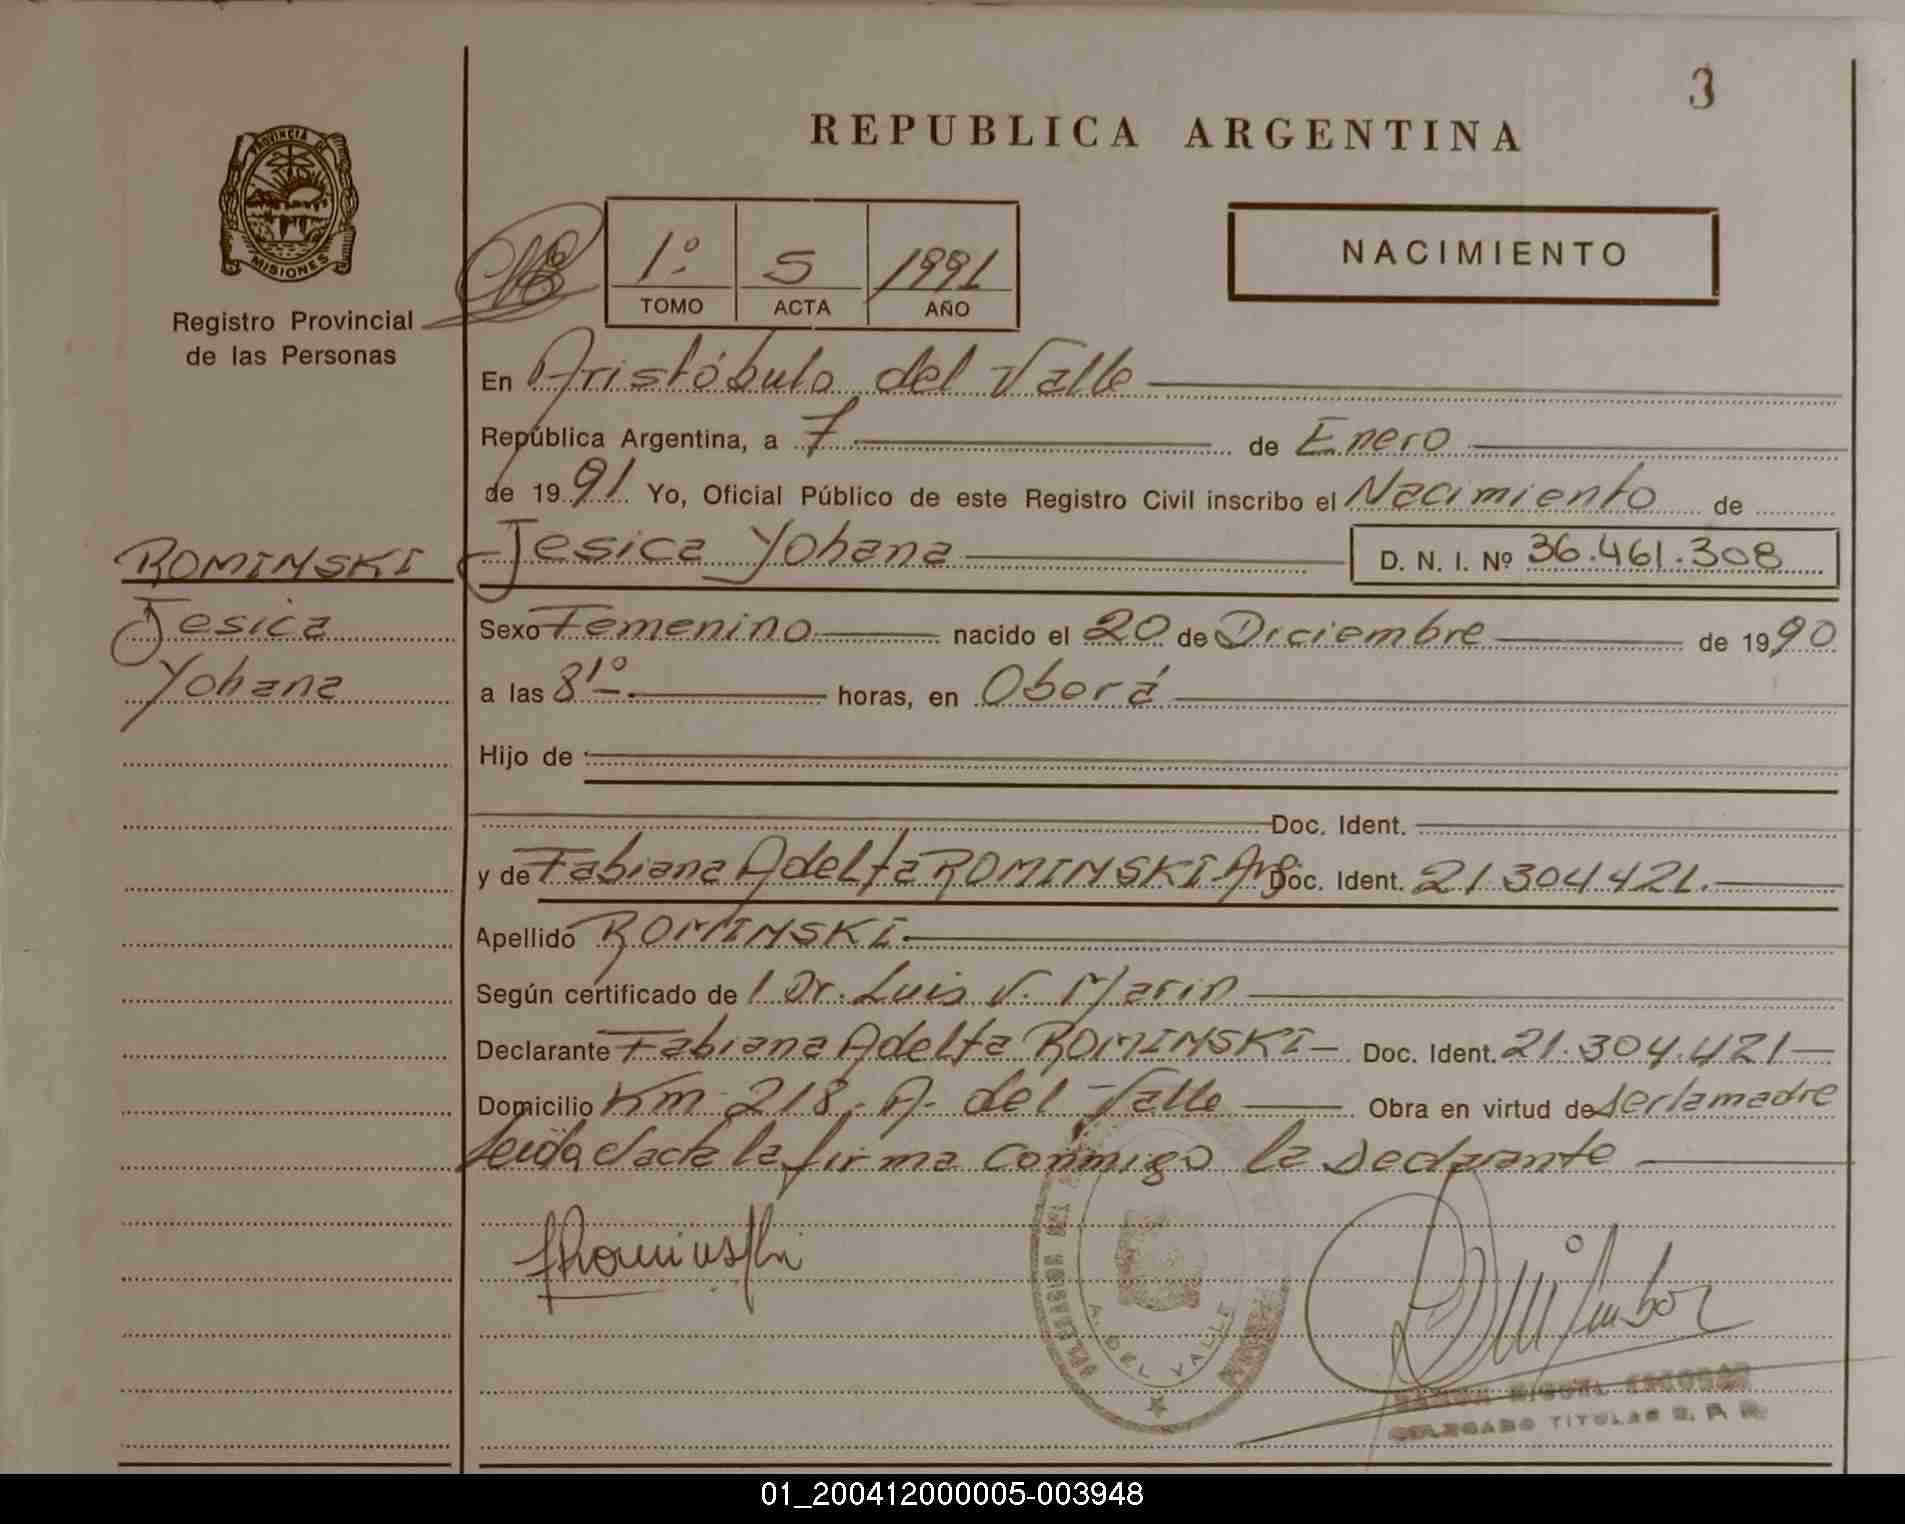 3
REPUBLICA ARGENTINA
PROVINCIA DE
MISIONES
Registro Provincial
de las Personas
1º 5 1991
TOMO ACTA AÑO
NACIMIENTO
En Aristóbulo del Valle
República Argentina, a 7 de Enero
de 1991 Yo, Oficial Público de este Registro Civil inscribo el Nacimiento de
ROMINSKI
Jesica
Yohana
Jesica Yohana D. N. I. Nº 36.461.308
Sexo Femenino nacido el 20 de Diciembre de 1990
a las 8 10 horas, en Oberá
Hijo de
Doc. Ident.
y de Fabiana Adelfa ROMINSKI Arg Doc. Ident. 21.304.421.
Apellido ROMINSKI
Según certificado de 1 Dr. Luis V. Marin
Declarante Fabiana Adelfa ROMINSKI Doc. Ident. 21.304.421
Domicilio Km 218. A. del Valle Obra en virtud de ser la madre
leída el acta la firma conmigo la declarante
A. DEL VALLE
RAMON MIGUEL ESCOBAR
DELEGADO TITULAR R. P. P.
01_200412000005-003948